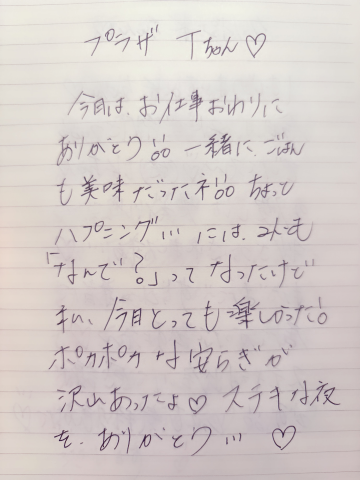 プラザ Tちゃん♡
今日は、お仕事おわりに
ありがとう!!一緒に、ごはん
も美味だったネ!!ちょって
ハプニング…には、2人とも
「なんで?」って なったけど
私、今日とっても楽しかった!!
ポカポカな安らぎが
沢山あったよ♡ ステキな夜
を、ありがとう… ♡